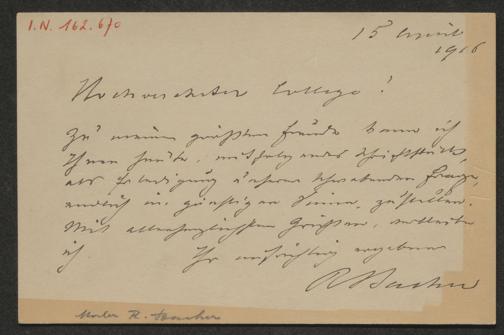 I.N. 162.670
15 April
1916
Hochverehrter Collega!
Zu meiner größten Freude kann ich
Ihnen heute, mitfolgendes Schriftstück,
als Erledigung unserer schwebenden Frage,
endlich in günstigem Sinne, zustellen.
Mit allerherzlichsten Grüßen, verbleibe
ich Ihr aufrichtig ergebener
Maler R.